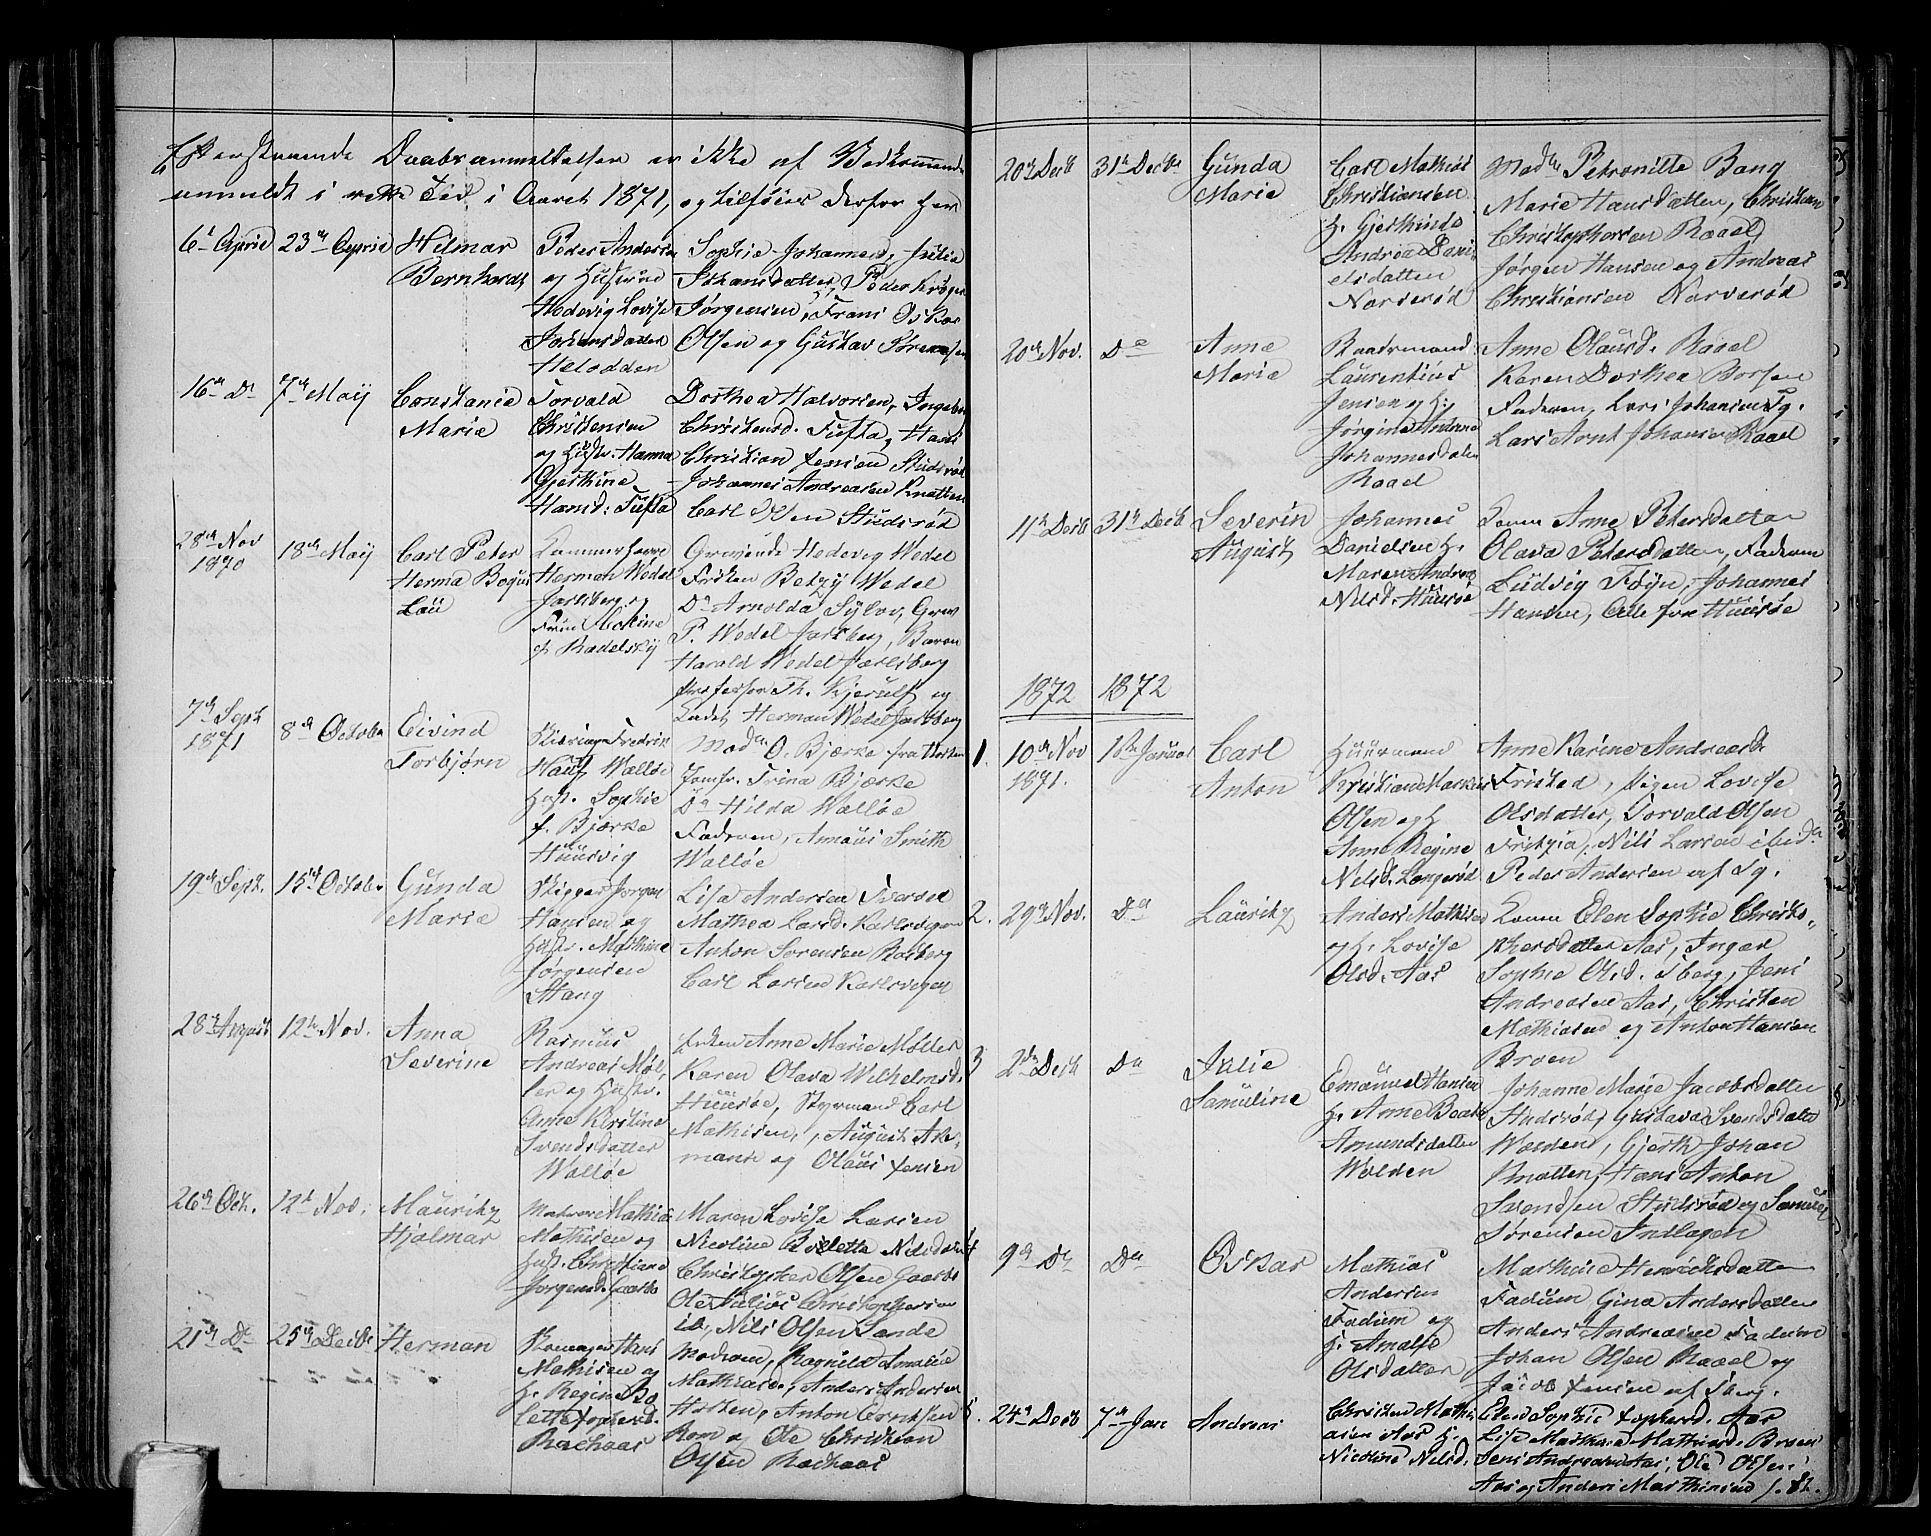 Efterstaaende Daabsanmeldelser er ikke af Vedkommende
anmeldt i rette Tid i Aaret 1871, og tilføies derfor her
6t April 23de April Hilmar Bernhardt
Peder Andersen
og Hustrue
Hedevig Lovise
Johansdatter
Helodden
Sophie Johannesd. Julia
Johansdatter, Peder Krøger
Jørgensen, Frans Oskar
Olsen og Gustav Sørensen
16de Do 7de Maij Constancia Maria
Torvald
Christensen
og Hustr. Hanna
Gjerthine
Hansd: Tufta
Dorthea Halvorsen, Ingebor
Christensd. Tufta, Hans
Christian Jensen Studsrød
Johannes Andreasen Knatten
Carl Olsen Studsrød
28de Nov 1870 18de Maij Carl Peter Herma Bogus Lau
Kammerherre
Herman Wedel
Jarlsberg og
Frue
f. Radelsky
Grevinde Hedevig Wedel
Frøken Betzy Wedel
Do Arnolda Sylow, Grev
P. Wedel Jarlsberg, Baron
Harald Wedel Jarlsberg
Professor Th. Kjerulf og
Cadet Herman Wedel Jarlsberg
7de Sept 1871 8de Octobr Eivind Torbjørn
Fredrik
Walløe
Hust. Sophie
f. Bjerke
Huusvig
Madm O. Bjerke fra Horten
Jomfr. Trina Bjerke
Do Hilda Walløe
Faderen, Smith
Walløe
19de Sept. 15de Octobr Gunda Maria
Skipper Jørgen
Hansen og
Hustr. Mathine
Jørgensen
Stang
Lisa Andersen Tveraa
Mathea Larsd. Karlsvigen
Anton Sørensen Rosberg
Carl Larsen Karlsvigen
28de August 12te Nov. Anna Severine
Rasmus
Andreas Møl
ler og Hustr.
Anne Kirstine
Svendsdatter
Walløe
Enken Anne Marie Møller
Karen Olava Wilhelmsd.
Huusøe, Styrmand Carl
Mathisen, August Ake
mann og Olaus Jensen
26de Oct. 12te Nov. Mauritz Hjalmar
Matros Mathias
Mathisen og
Hust. Christiane
Jørgensd. Gaasø
Maren Lovise Larsen
Nicoline Bolette Nilsdatter
Christopher Olsen Gaasø
Ole Julius Christophersen
ib., Nils Olsen Sande
21de Do 25de Decbr Herman
Hans
Mathisen og
H. Regine Bo
lette Tophersd.
Rachaas
Modren, Ragnild Amalie
Mathiasd., Anders Andersen
Horten, Anton Erichsen
Rom og Ole Christian
Olsen Rachaas
20de Decb 31te Decbr Gunda Maria
Carl Mathias
Christiansen
H. Gjerthinde
Andrea Dani
elsdatter
Narverød
Madm Petronille Bang
Marie Hansdatter, Christian
Christophersen Raael
Jørgen Hansen og Andreas
Christiansen Narverød
20de Nov. Do Anne Maria
Baadsmand
Laurentius
Jensen og H.
Jørgine Andrea
Johannesdatter
Raael
Anne Olausd. Raael
Karen Dorthea Borsen
Faderen, Lars Johansen Tg.
Lars Arnt Johansen Raael
11te Decb 31te Decb Severin August
Johannes
Danielsen H.
Maren Andrea
Nilsd. Huusøe
Konen Anne Petersdatter
Olava Petersdatter, Faderen
Ludvig Føyn, Johannes
Hansen, Alle fra Huusøe
1872 1872
1. 10de Nov 1871. 1ste Januar Carl Anton
Huusmand
Kristian Markus
Olsen og H.
Anne Regine
Nilsd. Langerød
Anne Karine Andreasd.
Fristad, Pigen Lovise
Olsdatter, Torvald Olsen
Nils Larsen ibid.
Peder Andersen af Tg.
2. 29de Nov. Do Lauritz
Anders Mathisen
og H. Lovise
Olsd. Aas
Konen Elen Sophie Christo-
phersdatter Aas, Inger
Sophie Olsd. Tberg, Jens
Andreasen Aas, Christen
Mathisen og Anton Hansen
Broen
3 2de Decb Do Julie Samuline
Emanuel Hansen
H. Anne Beate
Amundsdatter
Wolden
Johanne Marie Jacobsdatter
Studsrød, Gustava Svendsdatter
Wolden, Gjerth Johan
Knatten, Hans Anton
Svendsen Studsrød og Samuel
Sørensen Indlagen
4 9de Do Do Oskar
Mathias
Andersen
Fadum og
H. Amalie
Olsdatter
Mathine Henriksdatter
Fadum Gina Andersdatter
Anders Andreasen Fadum
Johan Olsen Raael og
Jacob Jensen af Tberg.
5. 24de Decb 7de Jan Andreas
Christen Mathi
asen Aas H.
Nicoline Nilsd.
Elen Sophie Tophersd. Aas
Lise Mathea Mathiasd. Broen
Jens Andreasen Aas, Ole Olsen
Aas og Anders Mathisen